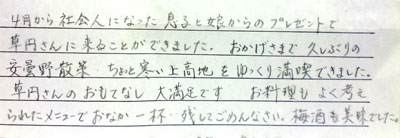 4月から社会人になった息子と娘からのプレゼントで
草円さんに来ることができました。おかげさまで久しぶりの
安曇野散策、ちょっと寒い上高地をゆっくり満喫できました。
草円さんのおもてなし大満足です お料理もよく考え
られたメニューでおなか一杯…残してごめんなさい。梅酒も美味でした。